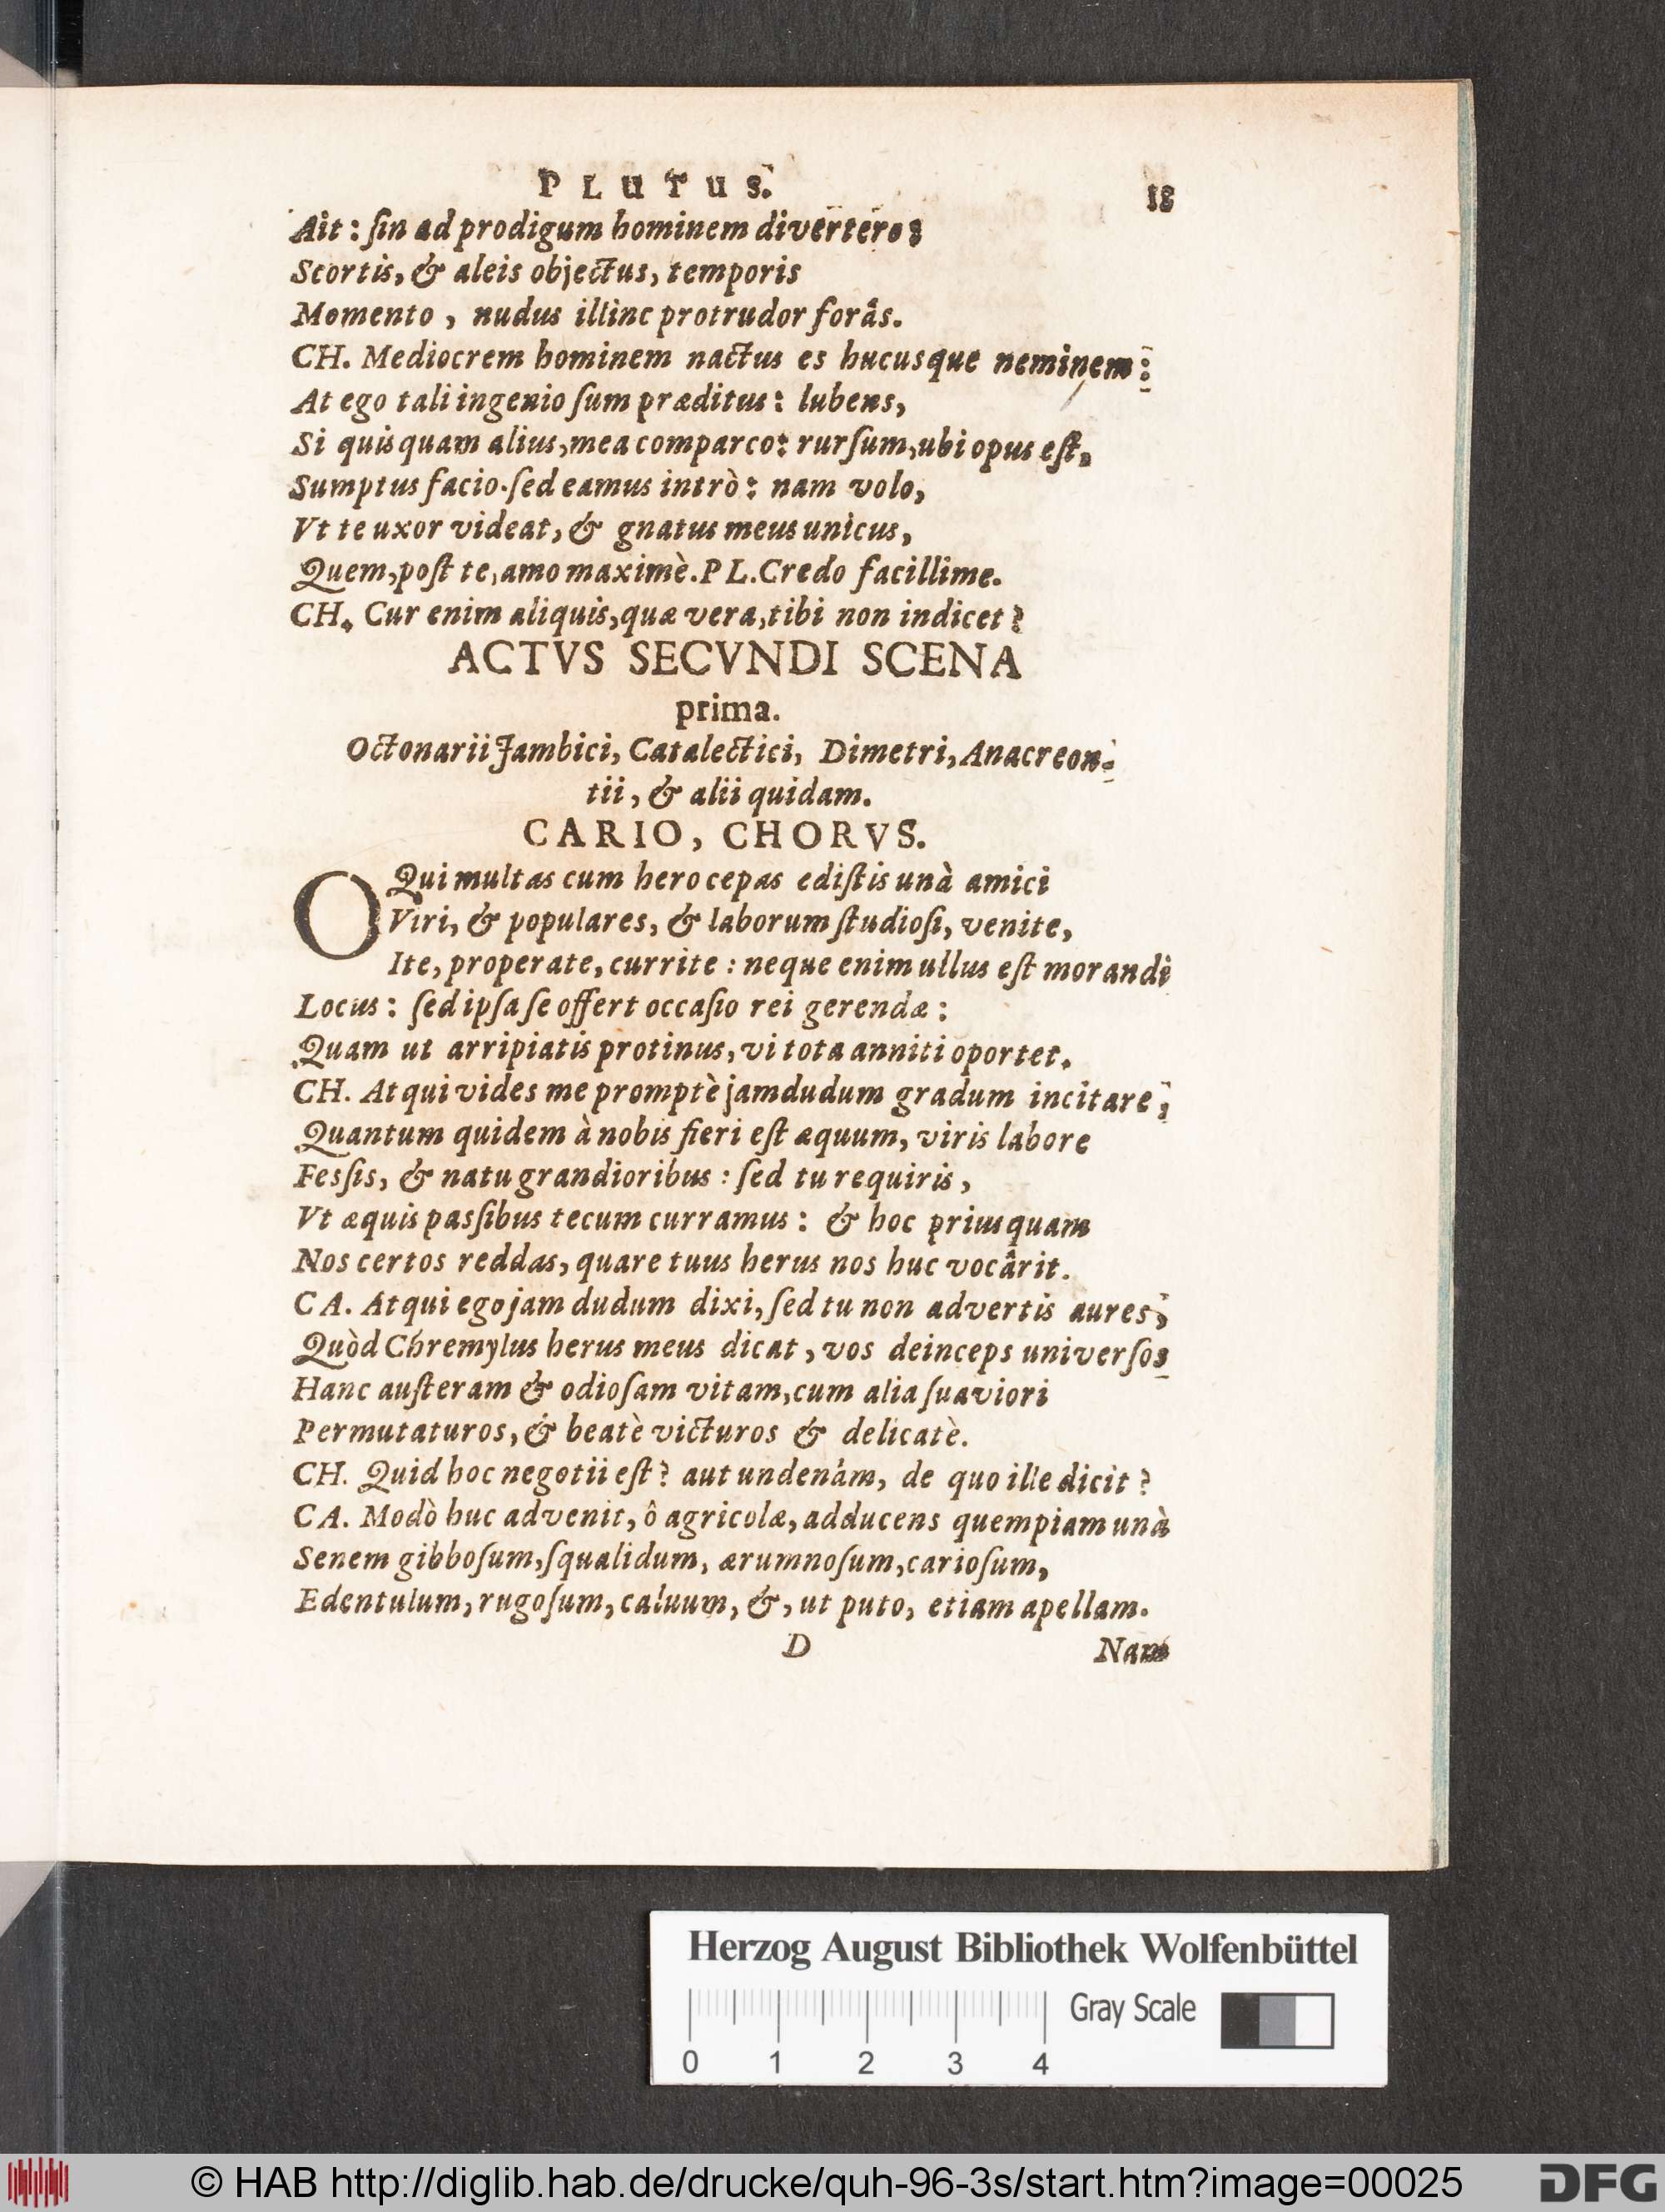 PLUTUS.
18
Ait: ſin ad prodigum hominem divertero:
Scortis, & aleis objectus, temporis
Momento, nudus illinc protrudor forâs.
CH. Mediocrem hominem nactus es hucusque neminem:
At ego tali ingenio ſum præditus: lubens,
Si quisquam alius, mea comparco: rurſum, ubi opus eſt,
Sumptus facio. ſed eamus intrò: nam volo,
Vt te uxor videat, & gnatus meus unicus,
Quem, poſt te, amo maximè. PL. Credo facillime.
CH. Cur enim aliquis, quæ vera, tibi non indicet?
ACTVS SECVNDI SCENA
prima.
Octonarii Jambici, Catalectici, Dimetri, Anacreon-
tii, & alii quidam.
CARIO, CHORVS.
O Qui multas cum hero cepas ediſtis unà amici
Viri, & populares, & laborum ſtudioſi, venite,
Ite, properate, currite: neque enim ullus eſt morandi
Locus: ſed ipſa ſe offert occaſio rei gerendæ:
Quam ut arripiatis protinus, vi tota anniti oportet.
CH. Atqui vides me promptè jamdudum gradum incitare,
Quantum quidem à nobis fieri eſt æquum, viris labore
Fesſis, & natu grandioribus: ſed tu requiris,
Vt æquis pasſibus tecum curramus: & hoc priusquam
Nos certos reddas, quare tuus herus nos huc vocârit.
CA. Atqui ego jam dudum dixi, ſed tu non advertis aures,
Quòd Chremylus herus meus dicat, vos deinceps univerſos
Hanc auſteram & odioſam vitam, cum alia ſuaviori
Permutaturos, & beatè victuros & delicatè.
CH. Quid hoc negotii eſt? aut undenàm, de quo ille dicit?
CA. Modò huc advenit, ô agricolæ, adducens quempiam unà
Senem gibboſum, ſqualidum, ærumnoſum, carioſum,
Edentulum, rugoſum, caluum, &, ut puto, etiam apellam.
D
Nam
Herzog August Bibliothek Wolfenbüttel
Gray Scale
0 1 2 3 4
© HAB http://diglib.hab.de/drucke/quh-96-3s/start.htm?image=00025
DFG